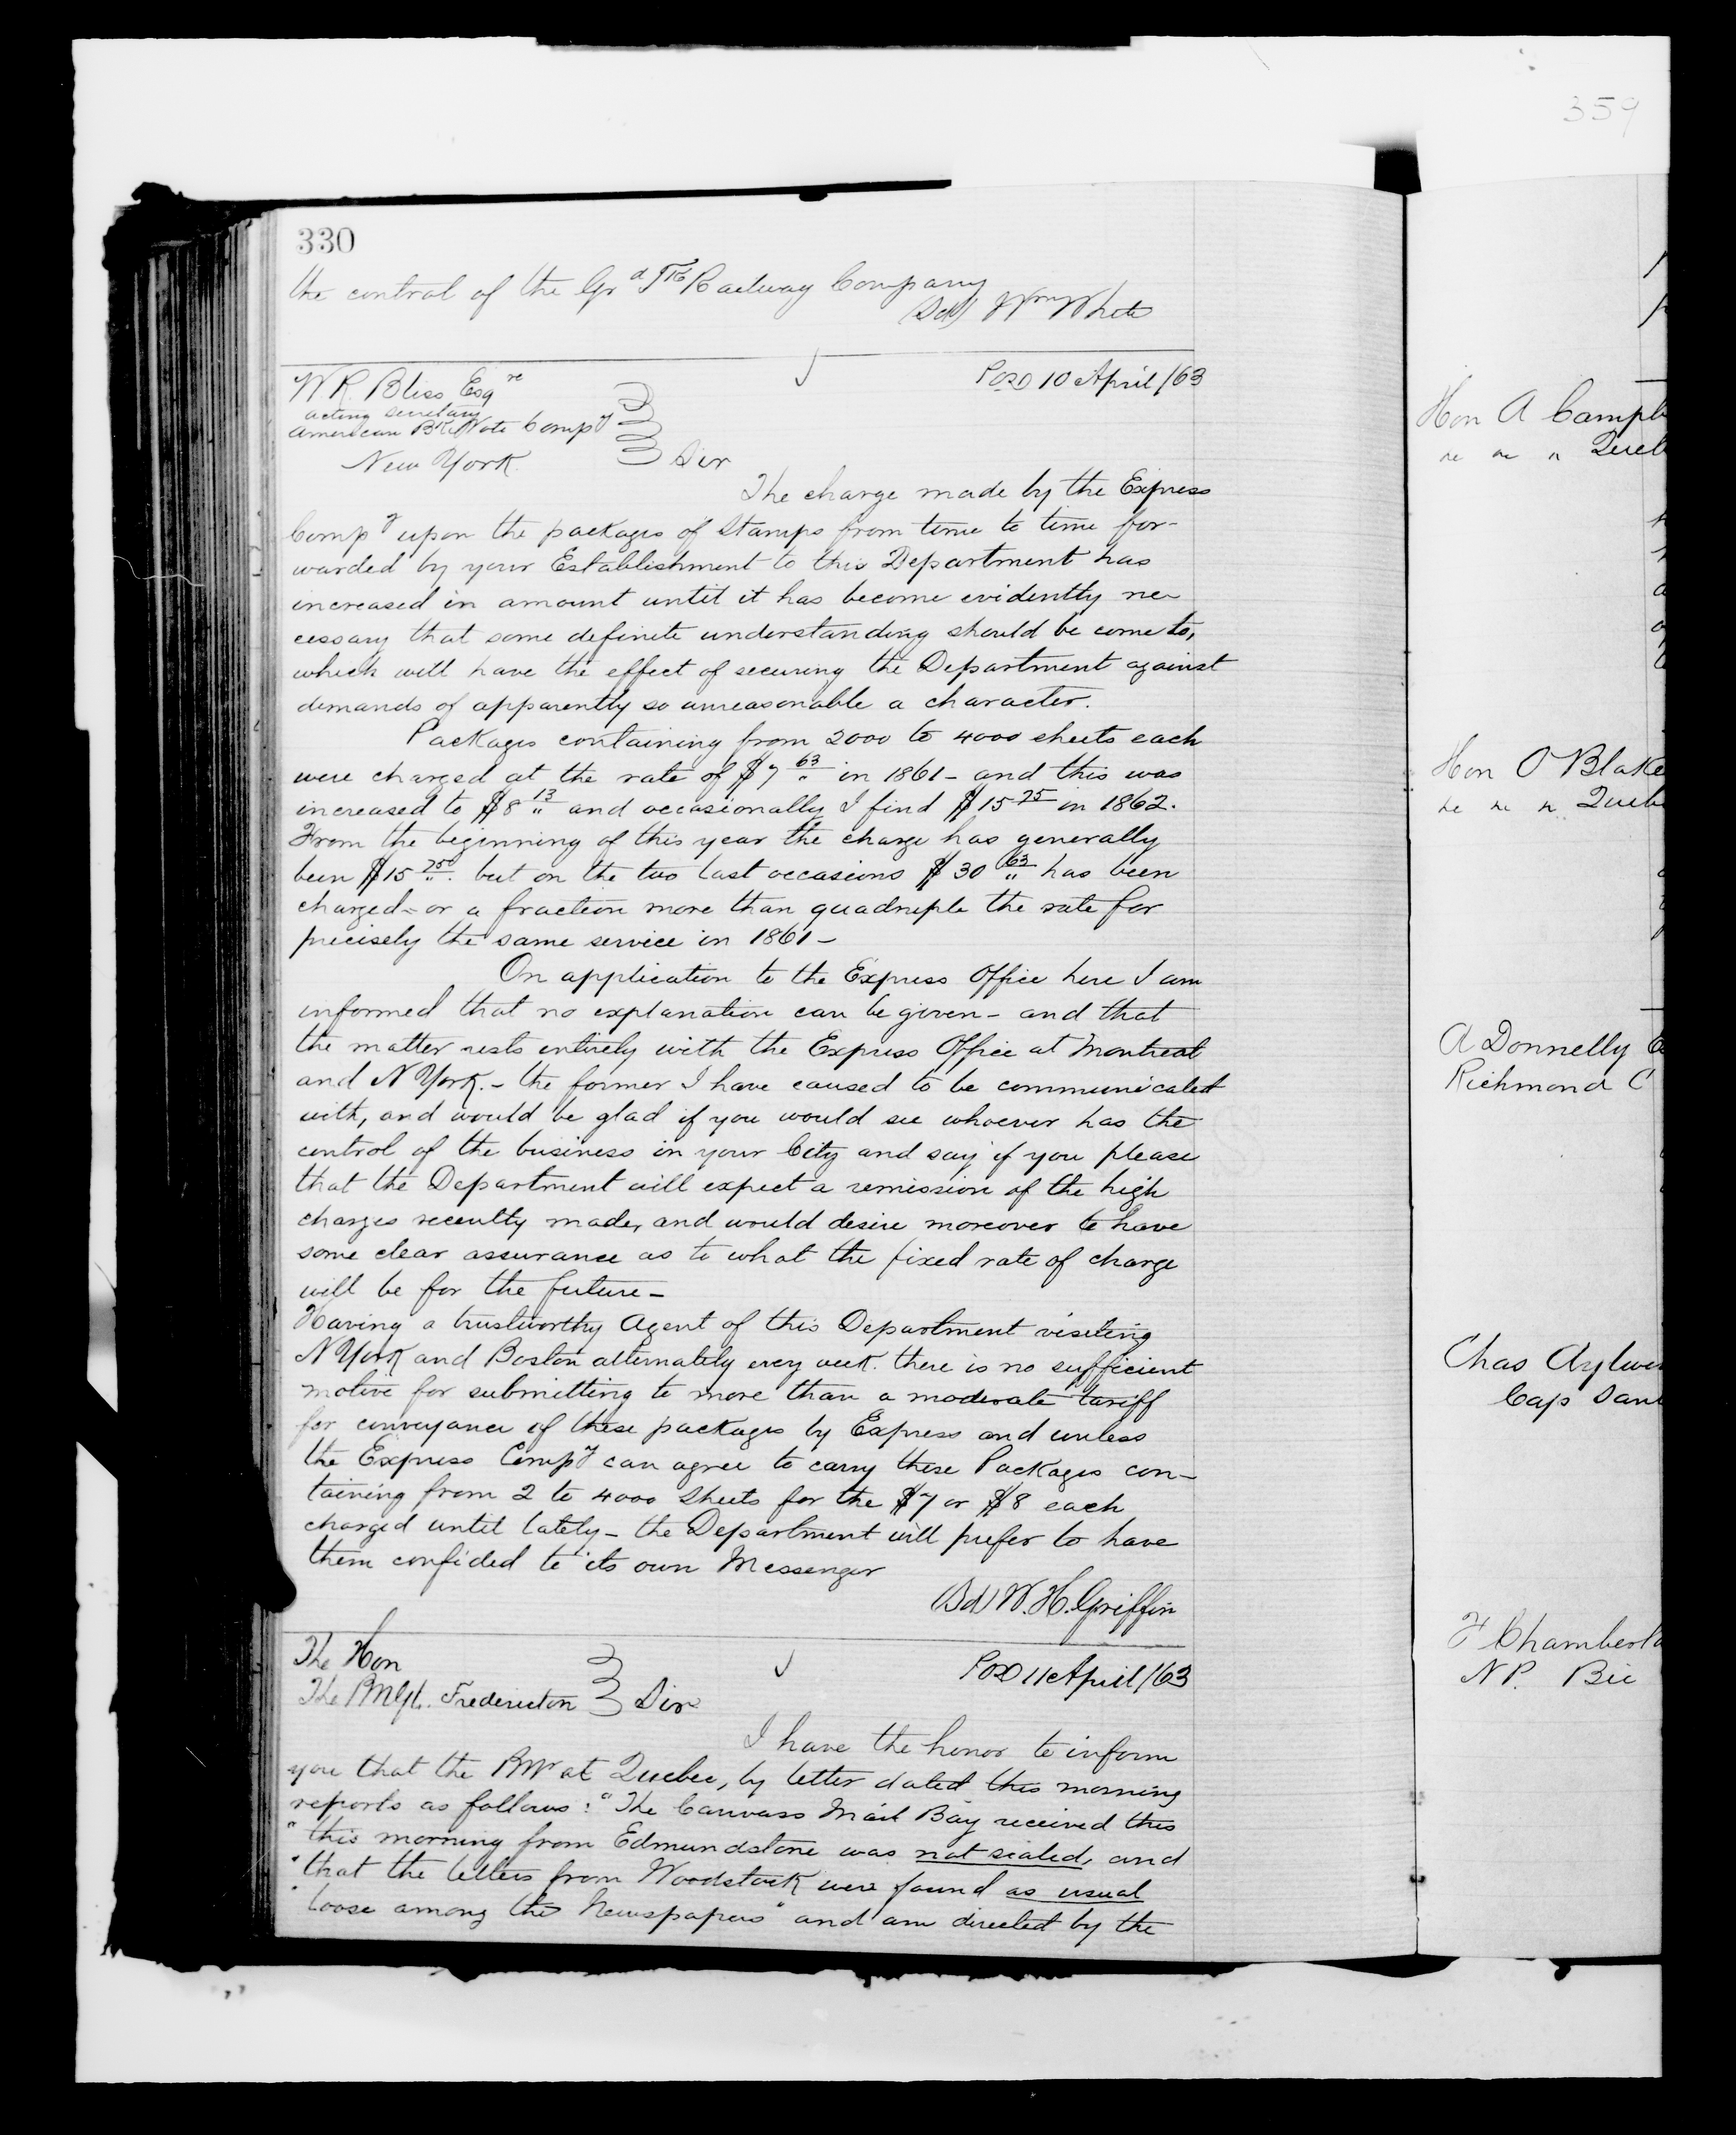 359
330
the control of the Grd Tk Railway Company
(Sd) Wm White
W R. Bliss Esqre
acting secretary
American Bk Note Compy
New York.
Sir
POD 10 April/63
The charge made by the Express
Compy upon the packages of Stamps from time to time for-
warded by your Establishment to this Department has
increased in amount until it has become evidently ne-
cessary that some definite understanding should be come to,
which will have the effect of securing the Department against
demands of apparently so unreasonable a character.
Packages containing from 2000 to 4000 sheets each
were charged at the rate of $7 63 in 1861 - and this was
increased to $8 13 and occasionally I find $15 25 in 1862.
From the beginning of this year the charge has generally
been $15 250. but on the two last occasions $30 63 has been
charged - or a fraction more than quadruple the rate for
precisely the same service in 1861 -
On application to the Express Office here I am
informed that no explanation can be given - and that
the matter rests entirely with the Express Office at Montreal
and N York. - the former I have caused to be communicated
with, and would be glad if you would see whoever has the
control of the business in your City and say if you please
that the Department will expect a remission of the high
charges recently made, and would desire moreover to have
some clear assurance as to what the fixed rate of charge
will be for the future -
Having a trustworthy Agent of this Department visiting
N York and Boston alternately every week. there is no sufficient
motive for submitting to more than a moderate tariff
for conveyance of these packages by Express and unless
the Express Compy can agree to carry these Packages con-
taining from 2 to 4000 Sheets for the $7 or $8 each
charged until lately - the Department will prefer to have
them confided to its own Messenger
(Sd) W. H. Griffin
The Hon
The PMGl. Fredericton
Sir
POD 11 April/63
I have the honor to inform
you that the PMr at Quebec, by letter dated this morning
reports as follows: "The Canvass Mail Bag received this
" this morning from Edmundstone was not sealed, and
" that the letters from Woodstock were found as usual
" loose among the Newspapers" and am directed by the
Hon A Campb
" " " Queb
Hon O Blake
" " " Queb
A Donnelly E
Richmond C
Chas Aylwi
Cap Sant
F Chamberla
N P. Bic